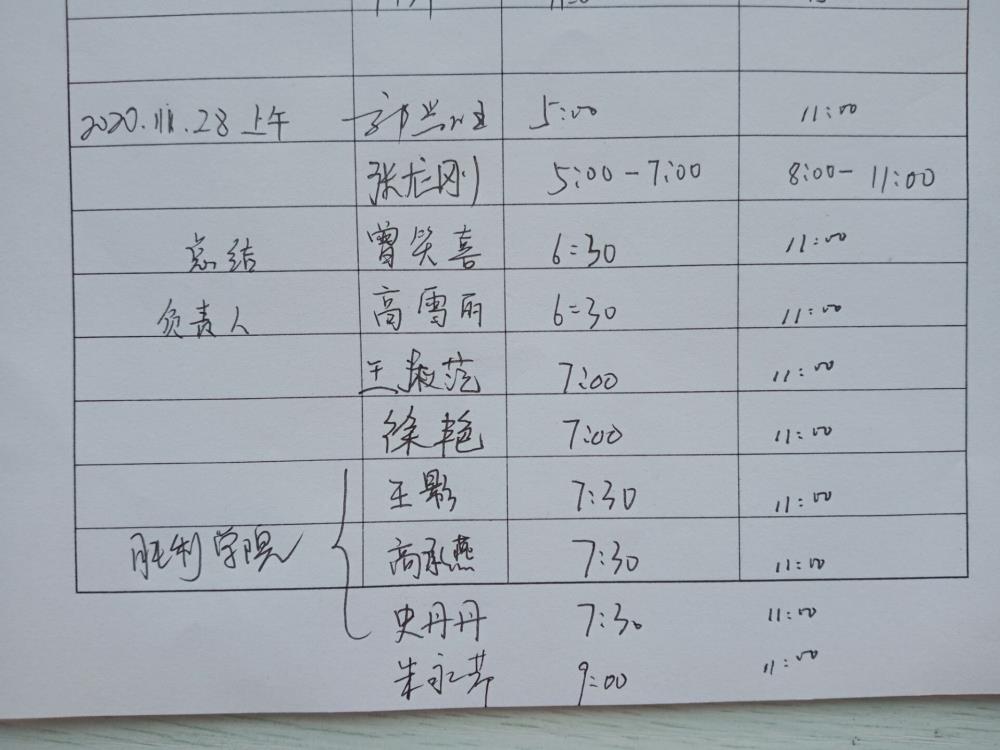 2020.11.28 上午 5:00 11:00
张龙刚 5:00-7:00 8:00-11:00
总结 曾笑喜 6:30 11:00
负责人 高雪丽 6:30 11:00
王淑范 7:00 11:00
徐艳 7:00 11:00
王影 7:30 11:00
胜利学院 高承燕 7:30 11:00
史丹丹 7:30 11:00
朱永芹 9:00 11:00